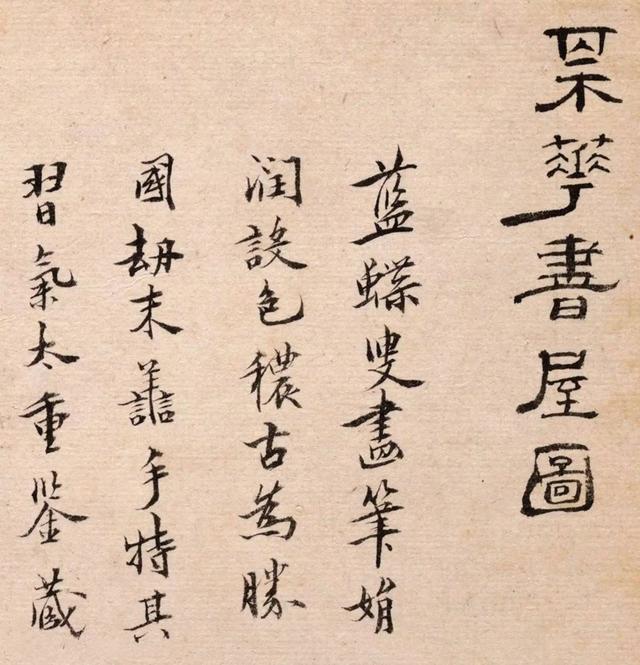 華書屋圖
藍蝶叟畫筆娟
潤設色穠古為勝
國劫末譱手特其
習氣太重鑒藏